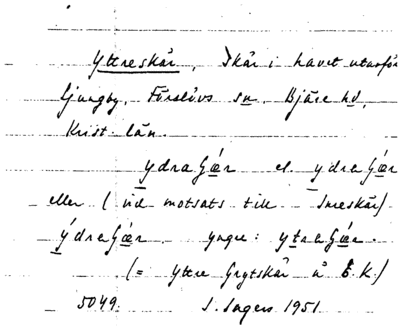 Yttreskär, Skär i havet utanför
Ljungby, Förslövs sn. Bjäre hd,
Krist. län.
ydraʃær el. ydraʃær
eller (vid motsats till Inreskär)
ýdraʃær. yngre: ytraʃær.
(= Yttre Grytskär å E.K.)
5049. S. Ingers 1951.